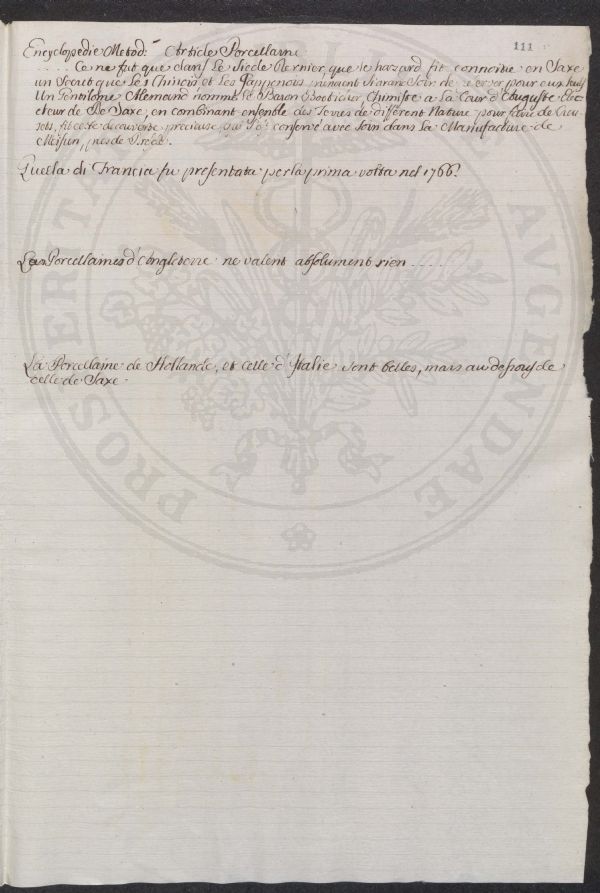 111
Encyclopedie Metod: Article Porcellaine
..... Ce ne fut que dans le Siecle dernier, que le hazard fit connoitre en Saxe
un Secret que les Chinois et les Japponois prenoient grand Soin de reserver pour eux seuls
Un Gentilome Allemand nommé le Baron Boeticher, Chimiste a la Cour d'Auguste Elec
cteur de Saxe, en combinant ensemble des Terres de diferent Nature pour faire de Creu
sets, fit cette decouverte precieuse, qui conservé avec Soin dans la Manufacture de
Meissen, pres de
Quella di Francia fu presentata per la prima volta nel 1766.
Les Porcellaines d'Angleterre ne valent absolument rien ......
La Porcellaine de Hollande, et celle d'Italie sont belles, mais au dessous de
celle de Saxe.
PROSPERITATI
AVGENDAE